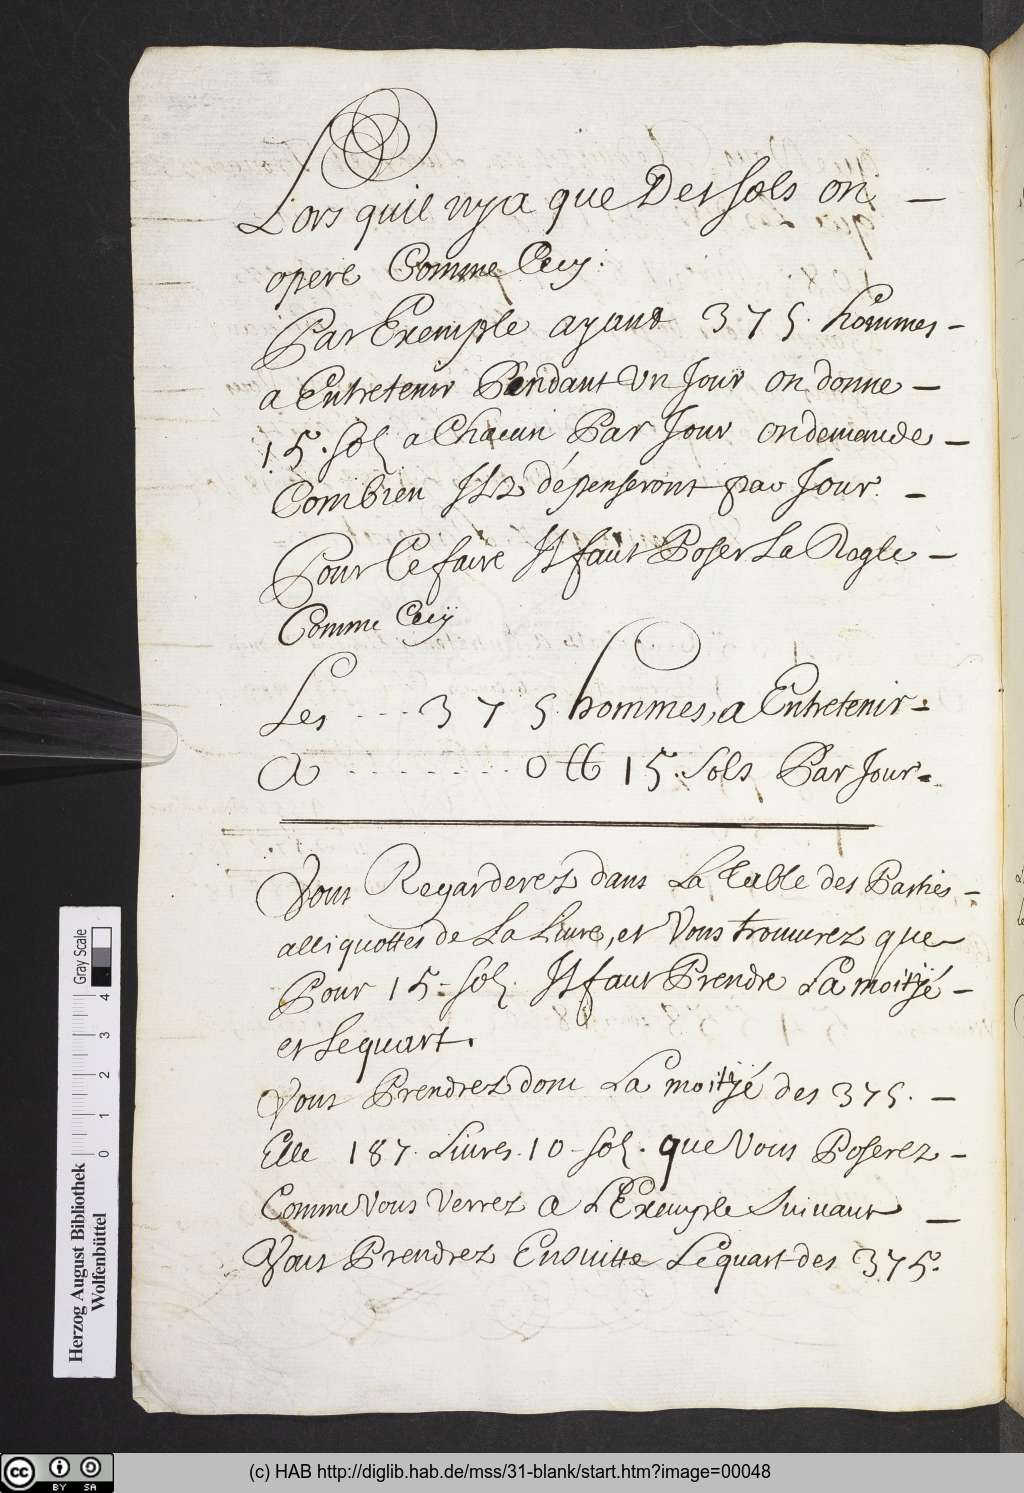 Lors quil nya que Des sols on –
opere Comme Cecy.
Par Exemple ayant 375. hommes –
a Entretenir Pendant Un Jour on donne –
15. sols a Chacun Par Jour on demende –
Combien Ilz dépenseront par Jour. –
Pour Ce faire Il faut Poser La Regle –
Comme Cecÿ
Les - - - - 3 7 5 hommes, a Entretenir -
a - - - - - - - - 0 tt 15. sols Par Jour -
Vous Regarderez dans La table des Parties –
alliquottes de La Livre, et Vous trouverez que –
Pour 15 - sols. Il faut Prendre La moitÿé –
et Le quart.
Vous Prendrez donc La moitÿé des 375. –
Elle 187. Livres. 10 - sols. que Vous Poserez –
Comme Vous Verrez a L'Exemple Suivant –
Vous Prendrez Ensuitte Le quart des 375.
Herzog August Bibliothek
Wolfenbüttel
0 1 2 3 4
Gray Scale
cc BY SA
(c) HAB http://diglib.hab.de/mss/31-blank/start.htm?image=00048